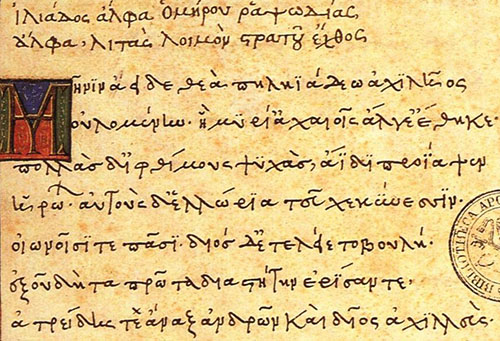 ἰλιάδος ἄλφα ὁμήρου ῥαψωδίας
ἄλφα· λιτὰς λοιμὸν στρατοῦ ἔχθος
Μῆνιν ἄειδε θεὰ πηληϊάδεω ἀχιλῆος
οὐλομένην· ἣ μυρί' ἀχαιοῖς ἄλγε' ἔθηκε·
πολλὰς δ' ἰφθίμους ψυχὰς ἄϊδι προΐαψεν
ἡρώων· αὐτοὺς δὲ ἑλώρια τεῦχε κύνεσσιν·
οἰωνοῖσί τε πᾶσι· διὸς δ' ἐτελείετο βουλή·
ἐξ οὗ δὴ τὰ πρῶτα διαστήτην ἐρίσαντε·
ἀτρείδης τε ἄναξ ἀνδρῶν καὶ δῖος ἀχιλλεύς·
BIBLIOTHECA